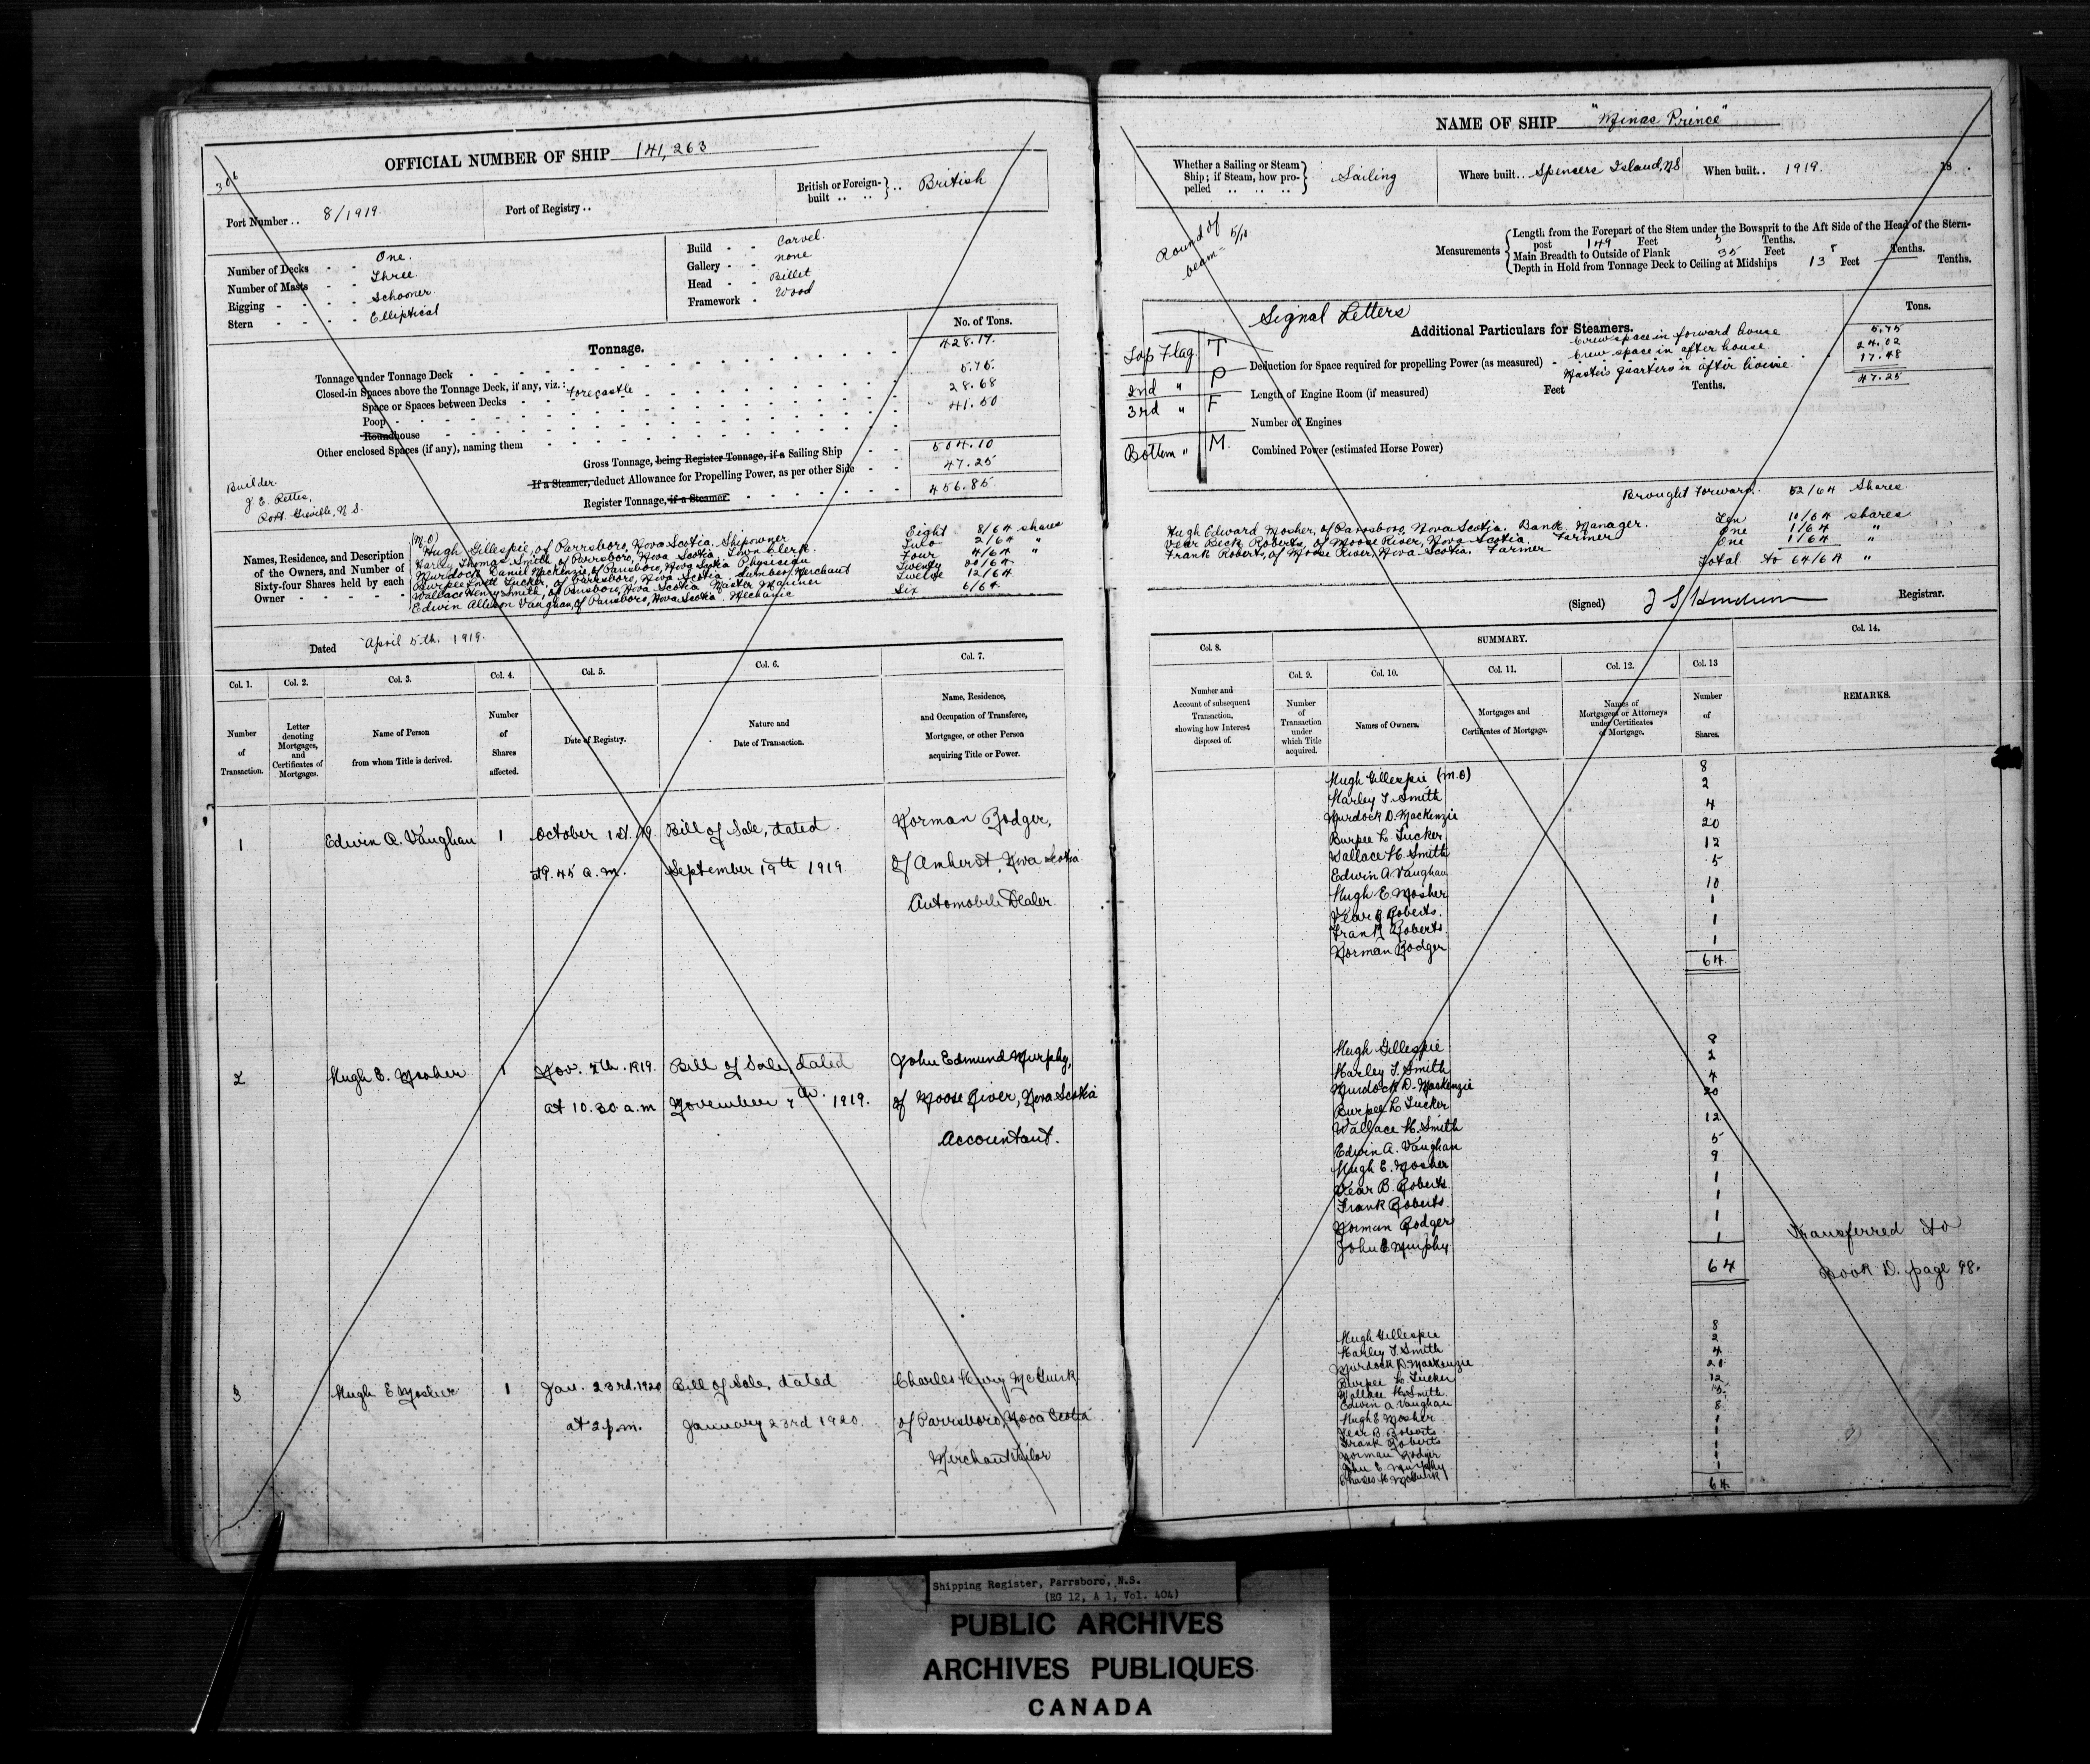 306
OFFICIAL NUMBER OF SHIP 141,263
Port Number .. 8/1919.
Port of Registry ..
British or Foreign-built .. .. } .. British
Number of Decks - - One.
Number of Masts - - Three.
Rigging - - - - Schooner.
Stern - - - - Elliptical
Build - - Carvel.
Gallery - - none
Head - - Billet
Framework - Wood
Tonnage.
No. of Tons.
Tonnage under Tonnage Deck 428.17.
Closed-in Spaces above the Tonnage Deck, if any, viz.: forecastle 5.75.
Space or Spaces between Decks 28.68
Poop 41.50
Roundhouse
Other enclosed Spaces (if any), naming them
Gross Tonnage, being Register Tonnage, if a Sailing Ship 504.10
If a Steamer, deduct Allowance for Propelling Power, as per other Side 47.25
Register Tonnage, if a Steamer 456.85
Builder.
J. E. Pettis,
Port Greville, N.S.
Names, Residence, and Description of the Owners, and Number of Sixty-four Shares held by each Owner
(M.O)
Hugh Gillespie, of Parrsboro, Nova Scotia. Shipowner Eight 8/64 shares
Harley Thomas Smith, of Parrsboro, Nova Scotia, Town Clerk. Two 2/64 "
Murdock Daniel MacKenzie, of Parrsboro, Nova Scotia Physician Four 4/64 "
Burpee Lnett Tucker, of Parrsboro, Nova Scotia. Lumber Merchant Twenty 20/64
Wallace Henry Smith, of Parrsboro, Nova Scotia. Master Mariner Twelve 12/64
Edwin Allison Vaughan, of Parrsboro, Nova Scotia. Mechanic Six 6/64
Dated April 5th. 1919.
Col. 1. Col. 2. Col. 3. Col. 4. Col. 5. Col. 6. Col. 7.
Number of Transaction.
Letter denoting Mortgages, and Certificates of Mortgages.
Name of Person from whom Title is derived.
Number of Shares affected.
Date of Registry.
Nature and Date of Transaction.
Name, Residence, and Occupation of Transferee, Mortgagee, or other Person acquiring Title or Power.
1 Edwin A. Vaughan 1 October 1st. 19. Bill of Sale, dated Norman Rodger,
at 9.45 a.m. September 19th 1919 of Amherst, Nova Scotia
Automobile Dealer.
2 Hugh E. Mosher 1 Nov. 7th. 1919. Bill of Sale, dated John Edmund Murphy,
at 10.30 a.m November 7th. 1919. of Moose River, Nova Scotia
Accountant.
3 Hugh E Mosher 1 Jan. 23rd. 1920 Bill of Sale, dated Charles Henry McGuirk
at 2 p.m. January 23rd 1920. of Parrsboro, Nova Scotia
Merchant Tailor
NAME OF SHIP "Minas Prince"
Whether a Sailing or Steam Ship; if Steam, how propelled .. .. .. } Sailing
Where built .. Spencers Island, N.S
When built .. 1919. 18 .
Round of beam = 5/10
Measurements
Length from the Forepart of the Stem under the Bowsprit to the Aft Side of the Head of the Stern-
post 149 Feet 5 Tenths.
Main Breadth to Outside of Plank 35 Feet 5 Tenths.
Depth in Hold from Tonnage Deck to Ceiling at Midships 13 Feet — Tenths.
Signal Letters
Top Flag. T
2nd " P
3rd " F
Bottom " M.
Additional Particulars for Steamers.
Tons.
Crew space in forward house 5.75
Crew space in after house. 24.02
Deduction for Space required for propelling Power (as measured) - Master's quarters in after house. 17.48
47.25
Length of Engine Room (if measured) Feet Tenths.
Number of Engines
Combined Power (estimated Horse Power)
Brought Forward. 52/64 Shares.
Hugh Edward Mosher, of Parrsboro, Nova Scotia. Bank Manager. Ten 10/64 shares
Vear Beck Roberts, of Moose River, Nova Scotia. Farmer One 1/64 "
Frank Roberts, of Moose River, Nova Scotia. Farmer One 1/64 "
Total 64/64 "
(Signed) Registrar.
Col. 8. SUMMARY. Col. 14.
Col. 9. Col. 10. Col. 11. Col. 12. Col. 13
Number and Account of subsequent Transaction, showing how Interest disposed of.
Number of Transaction under which Title acquired.
Names of Owners.
Mortgages and Certificates of Mortgage.
Names of Mortgagees or Attorneys under Certificates of Mortgage.
Number of Shares.
REMARKS.
Hugh Gillespie (M.O) 8
Harley T. Smith 2
Murdock D. MacKenzie 4
Burpee L. Tucker 20
Wallace H. Smith 12
Edwin A Vaughan 5
Hugh E. Mosher 10
Vear B Roberts. 1
Frank Roberts 1
Norman Rodger 1
64
Hugh Gillespie 8
Harley T. Smith 2
Murdock D. MacKenzie 4
Burpee L. Tucker 20
Wallace H. Smith 12
Edwin A. Vaughan 5
Hugh E. Mosher 9
Vear B. Roberts 1
Frank Roberts 1
Norman Rodger 1
John E Murphy 1
64
Transferred to
Book D. page 98.
Hugh Gillespie 8
Harley T. Smith 2
Murdock D. MacKenzie 4
Burpee L. Tucker 20
Wallace H. Smith 12
Edwin A Vaughan 5
Hugh E. Mosher 8
Vear B. Roberts 1
Frank Roberts 1
Norman Rodger 1
John E. Murphy 1
Charles H McGuirk 1
64
Shipping Register, Parrsboro, N.S.
(RG 12, A 1, Vol. 404)
PUBLIC ARCHIVES
ARCHIVES PUBLIQUES
CANADA